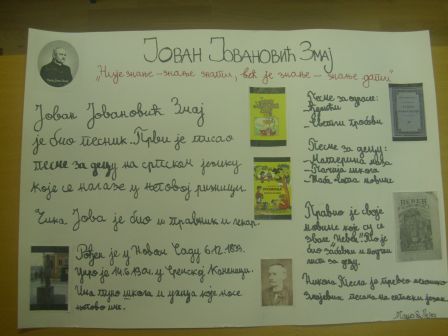 ЈОВАН ЈОВАНОВИЋ ЗМАЈ
„Није знање – знање знати, већ је знање – знање дати“
Јован Јовановић Змај
је био песник. Први је писао
песме за децу на српском језику
које се налазе у његовој ризници.
Чика Јова је био и правник и лекар.
Рођен је у Новом Саду 6.12.1833.
Умро је 14.6.1904. у Сремској Каменици.
Има пуно школа и улица које носе
његово име.
Песме за одрасле:
– Светли гробови
Песме за децу:
– Материна маза
– Пачија школа
– Жаба чита новине
Правио је своје
новине које су се
звале "Невен". То је
био забавни и поучни
лист за децу.
НЕВЕН
Никола Тесла је превео неколико
Змајевих песама на енглески језик.